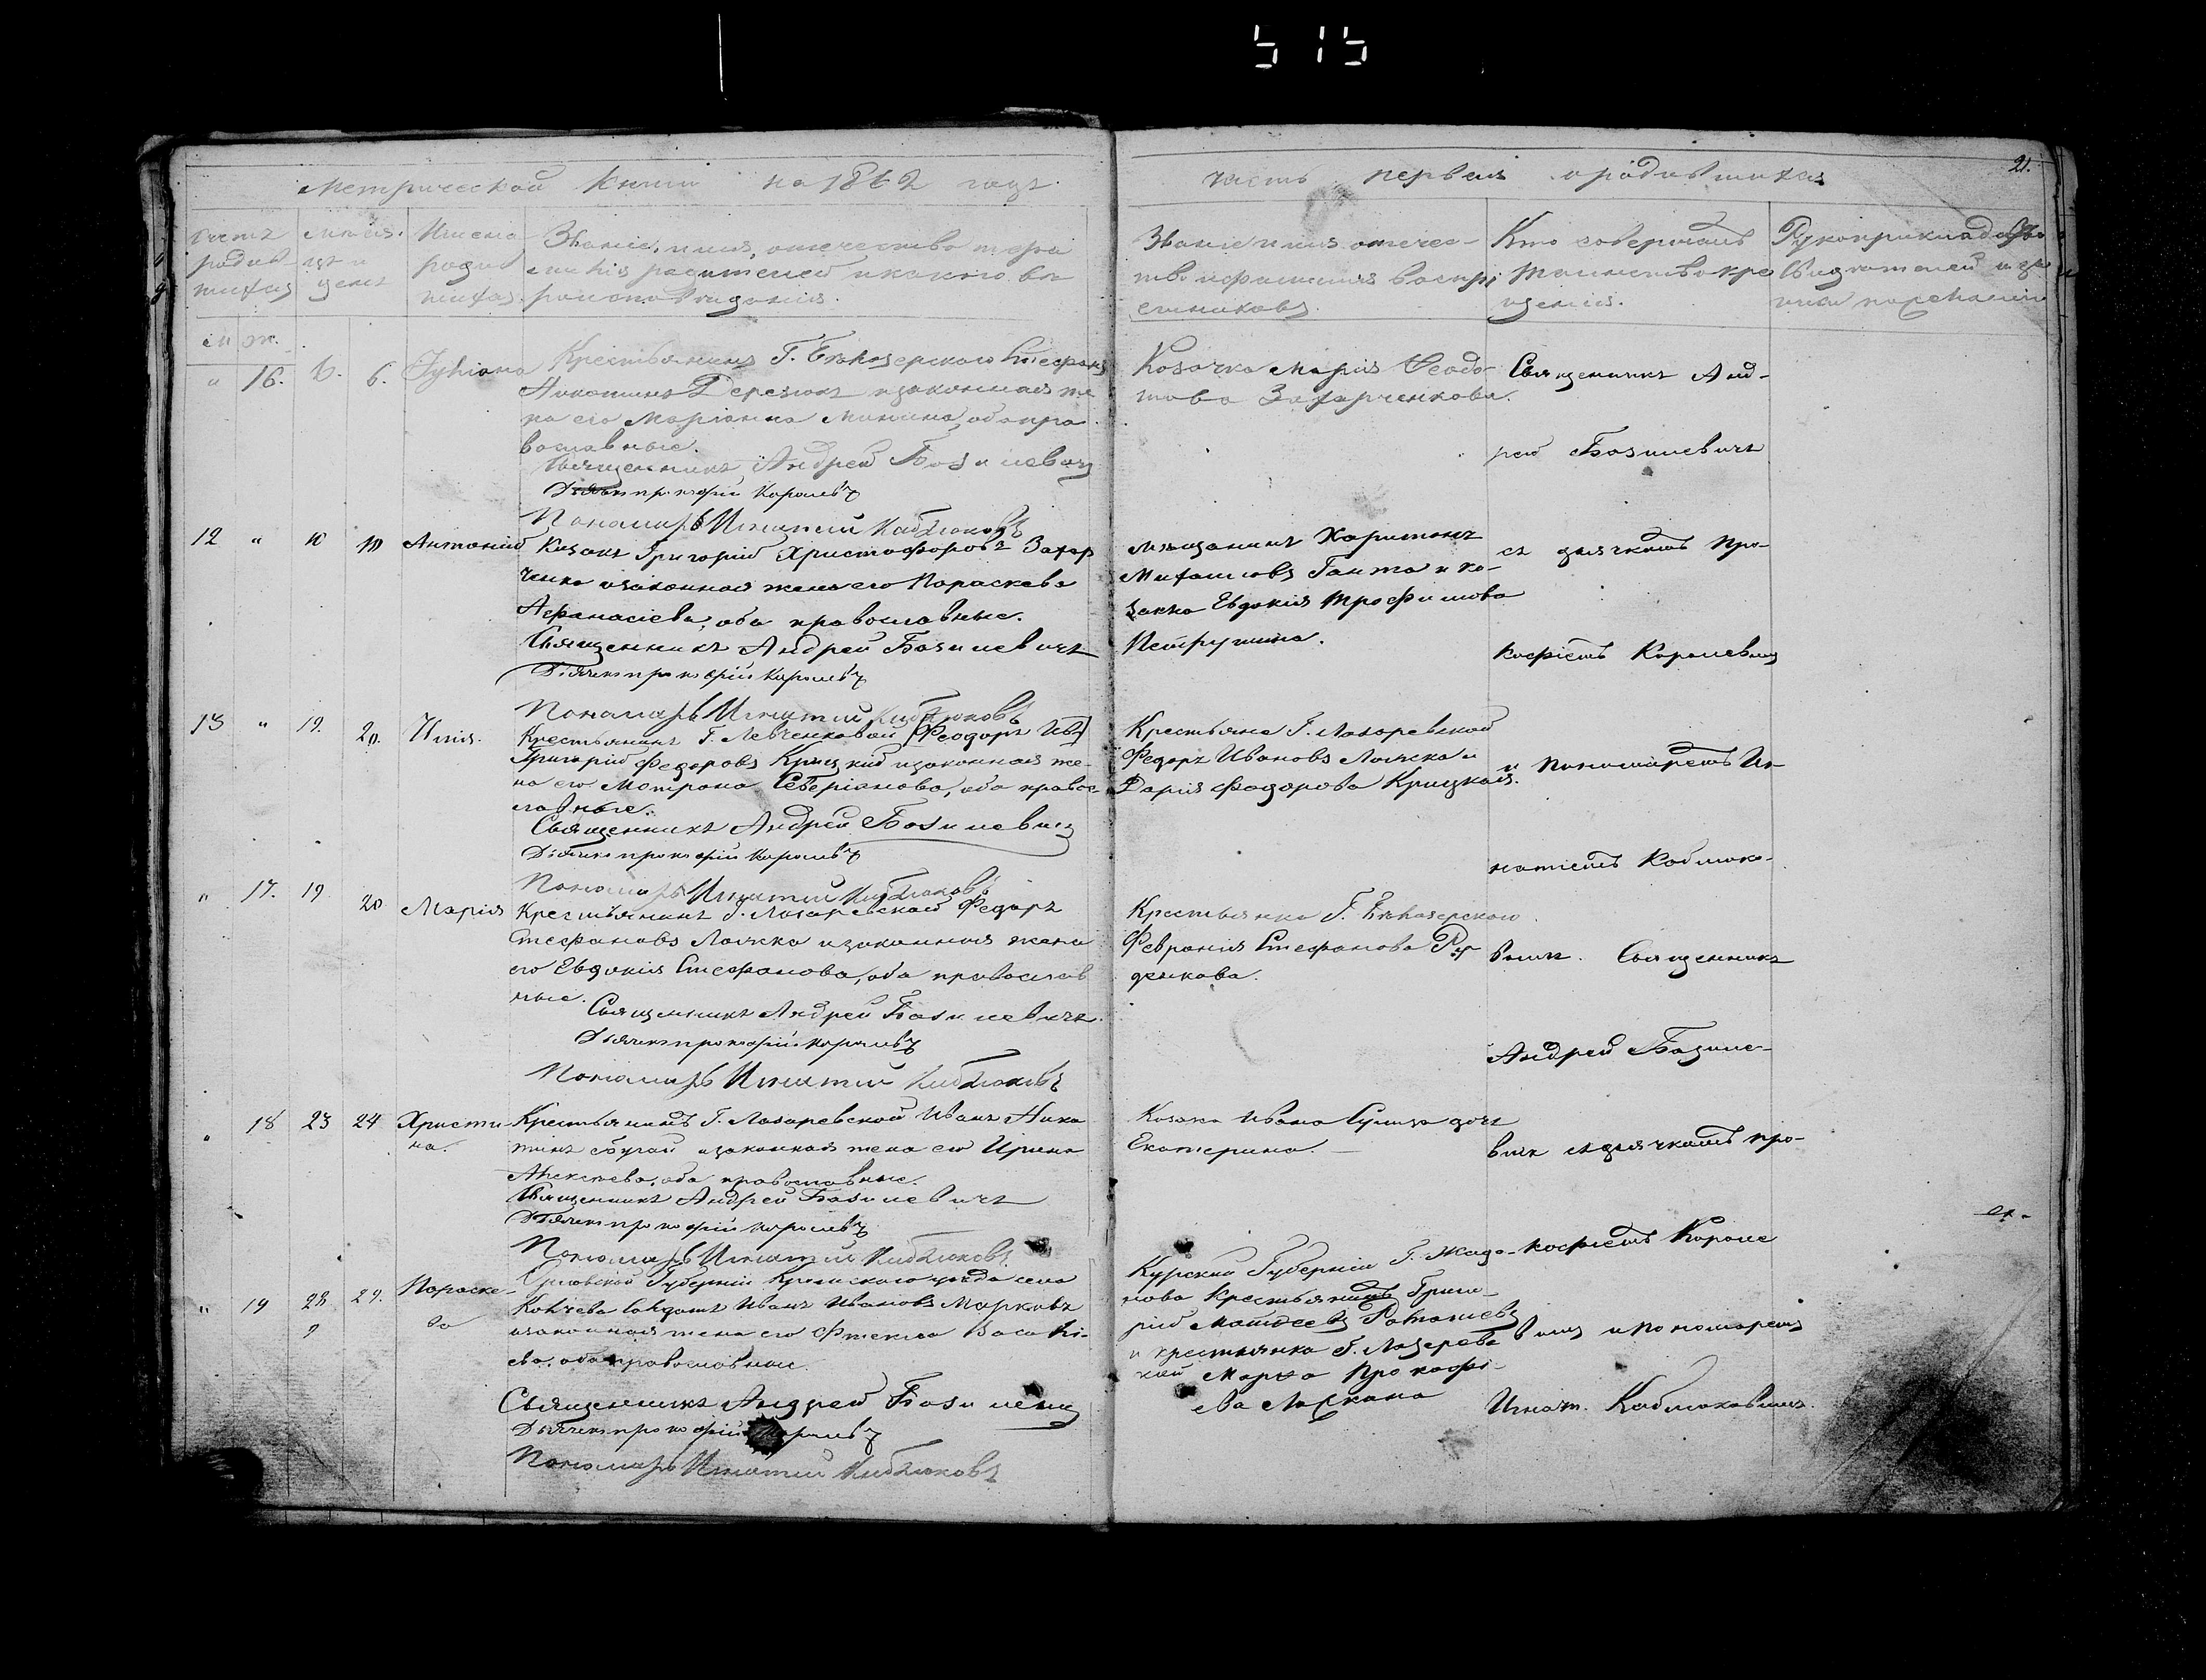 515
Метрической книги на 1862 годъ
часть первая о родившихся
21.
Счетъ
родив
шихся
Месяцъ и
день
Имена
родив
шихся.
Званіе, имя, отечество и фами
лія родителей и какого ве
роисповеданія.
Званіе имя отечес-
тво и фамилія воспрі
емниковъ.
Кто совершалъ
таинство кре
щенія.
Рукоприкладство
свидетелей
м ж.
" 16. 6. 6.
Крестьянинъ Г. Белозерского Стефанъ
на его Маріанна обо пра
вославные.
Священникъ Андрей Базилевичъ
Дьячекъ Прокофій Королевъ
Пономарь Игнатий Каблюковъ
Козачка Марія Феодо-
това Захарченкова.
Священникъ Анд-
рей Базилевичъ
12 " 10 10 Антоній
Козакъ Григорій Христофоровъ Захар
ченко и законная жена его Параскева
Афанасіева, оба православные.
Священникъ Андрей Базилевичъ
Дьячекъ Прокофій Королевъ
Пономарь Игнатий Каблюковъ
Мещанинъ Харитонъ
Михайловъ Ганта и ко-
зачка Евдокія Трофимова
Петрушина.
съ дьячкомъ Про-
кофіемъ Королевым
13 " 19. 20. Илія.
Крестьянинъ Г. Левченковой [Феодоръ Ив]
Григорій Федоровъ Крицкий и законная же-
на его Матрона Северіанова, оба правос-
лавные.
Священникъ Андрей Базилевичъ
Дьячекъ Прокофій Королевъ
Пономарь Игнатий Каблюковъ
Крестьяне Г. Лазаревской
Федоръ Ивановъ Ложка и
Дарія Федорова Крицкая.
и Пономаремъ Иг-
натіемъ Каблюко-
" 17. 19 20 Марія
Крестьянинъ Г. Лазаревской Федоръ
Стефановъ Ложка и законная жена
его Евдокія Стефанова, оба православ
ные.
Священникъ Андрей Базилевичъ.
Дьячекъ Прокофій Королевъ
Пономарь Игнатий Каблюковъ
Крестьянка Г. Белозерского
Феврония Стефанова Ру-
денкова.
вымъ. Священникъ
Андрей Базиле-
" 18 23 24 Христи-
на.
Крестьянинъ Г. Лазаревской Иванъ Ники
тинъ и законная жена его Ирина
Алексеева, оба православные.
Священникъ Андрей Базилевичъ
Дьячекъ Прокофій Королевъ
Пономарь Игнатий Каблюковъ
Козака Ивана дочь
Екатерина.
вичъ съ дьячкомъ Про-
кофіемъ Короле
" 19 28 29. Параске-
ва
Орловской Губерніи уезда села
Солдатъ Иванъ Ивановъ Марковъ
и законная жена его Фтекла Василі-
ева, оба православные.
Священникъ Андрей Базилевичъ
Дьячекъ Прокофій Королевъ
Пономарь Игнатий Каблюковъ
Курской Губерніи Г. Жада-
нова Крестьянинъ Григо-
рій Матвеевъ
и крестьянка Г. Лазарев
кой Марѳа Прокофі-
ева
вымъ и пономаремъ
Игнат. Каблюковымъ.